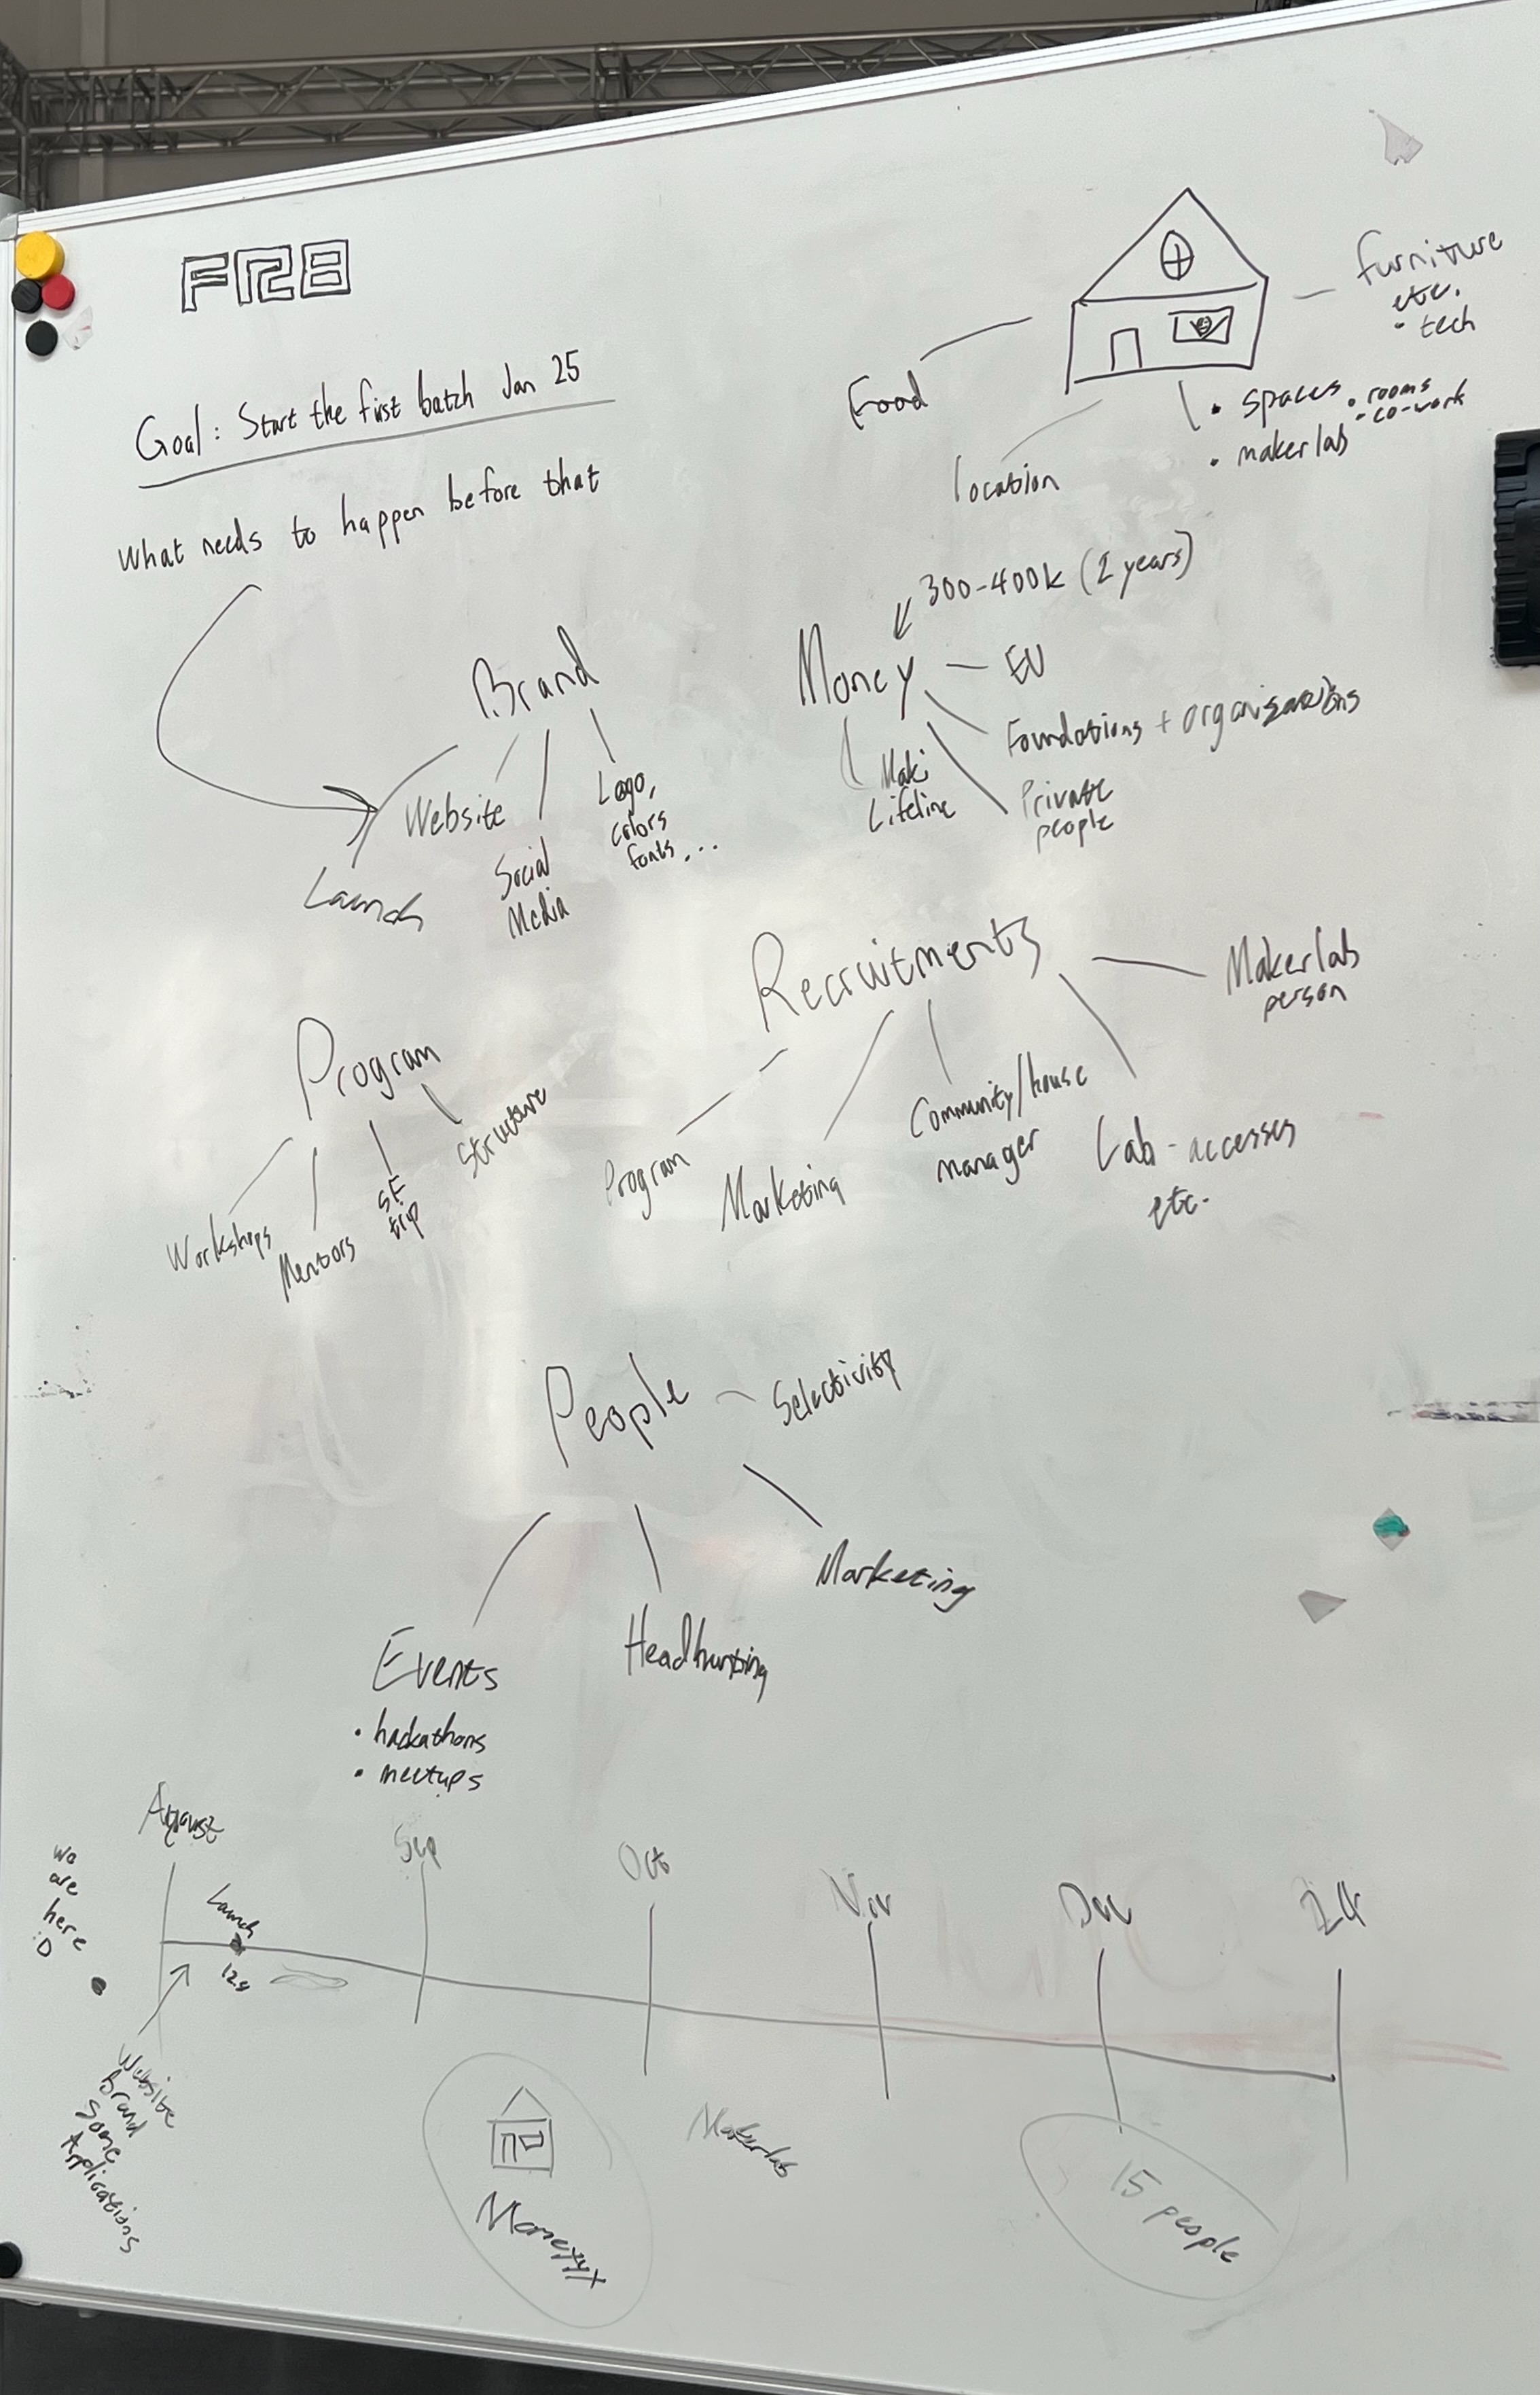 FR8
Goal: Start the first batch Jan 25
What needs to happen before that
Food
location
furniture
etc.
• tech
• spaces
• rooms
• co-work
• makerlab
Brand
Launch
Website
Social
Media
Logo,
colors
fonts, ...
300-400k (2 years)
Money
EU
Foundations + organisations
Private
people
Maki
Lifeline
Program
Workshops
Mentors
SF
trip
Structure
Recruitments
Program
Marketing
Community/house
manager
Lab-accesses
etc.
Makerlab
person
People
Selectivity
Marketing
Headhunting
Events
• hackathons
• meetups
We
are
here
:D
August
Launch
12.8
Sep
Oct
Nov
Dec
Website
Brand
Some
Applications
Moneyyy
Makerlab
15 people